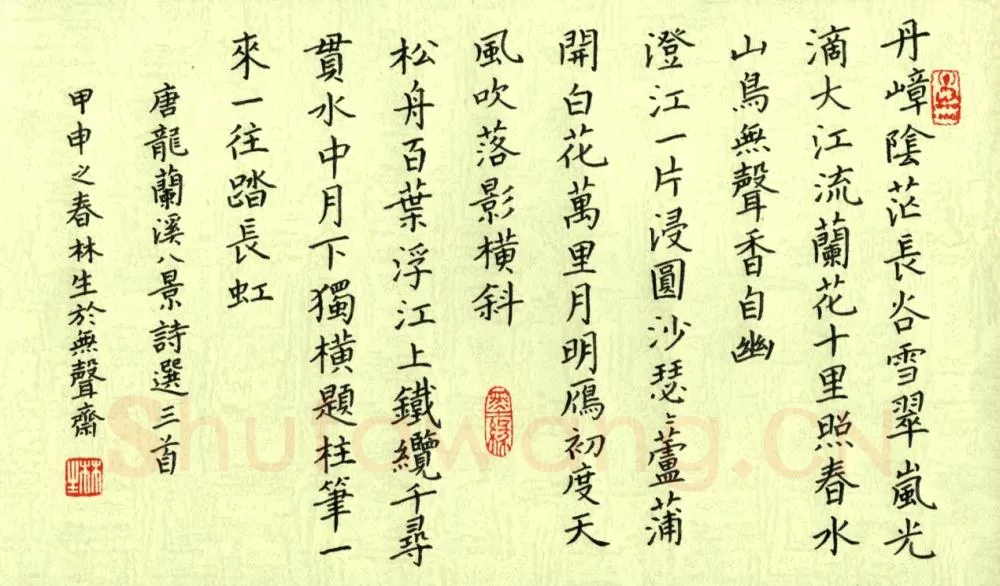 丹嶂陰茫長谷雪翠嵐光
滴大江流蘭花十里照春水
山鳥無聲香自幽
澄江一片浸圓沙瑟瑟蘆蒲
開白花萬里月明鴈初度天
風吹落影橫斜
松舟百葉浮江上鐵纜千尋
貫水中月下獨橫題柱筆一
來一往踏長虹
唐龍蘭溪八景詩選三首
甲申之春林生於無聲齋
Shufawang.CN